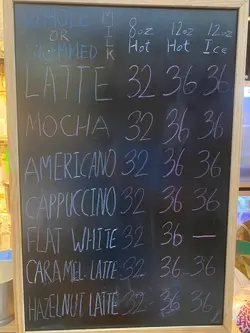 WHOLE OR SKIMMED MILK 8oz Hot 12oz Hot 12oz Ice
LATTE 32 36 36
MOCHA 32 36 36
AMERICANO 32 36 36
CAPPUCCINO 32 36 36
FLAT WHITE 32 36 —
CARAMEL LATTE 32 36 36
HAZELNUT LATTE 32 36 36